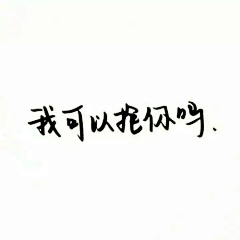 我可以抱你吗.